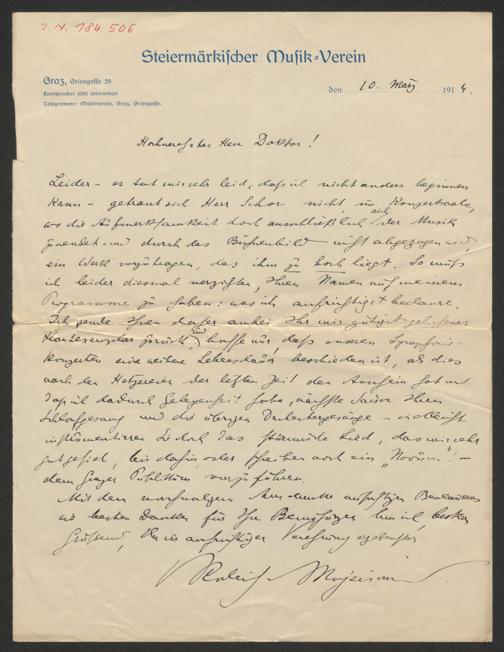 I.N. 184.506
Steiermärkischer Musik-Verein
Graz, Griesgasse 29
Fernsprecher 2202 interurban
Telegramme: Musikverein, Graz, Griesgasse.
den 10. März 1914.
Hochverehrter Herr Doktor!
Leider – es tut mir sehr leid, daß ich nicht anders beginnen
kann – getraut sich Herr Schor nicht, im Konzertsaale,
wo die Aufmerksamkeit doch ausschließlich sich der Musik
zuwendet und durch das Bühnenbild nicht abgezogen wird,
ein Werk vorzutragen, das ihm zu hoch liegt. So muß
ich leider diesmal verzichten, Ihren Namen auf meinem
Programme zu haben; was ich aufrichtigst bedaure.
Ich sende Ihnen daher anbei Ihr mir gütigst geliehenes
zurück und hoffe nur, daß unseren Symphonie-
konzerten eine weitere Lebensdauer beschieden ist, als dies
nach den Hetzereien der letzten Zeit den Anschein hat und
daß ich dadurch Gelegenheit habe, nächste Saison Ihren
Schlafgesang und die übrigen Orchestergesänge – vielleicht
instrumentieren Sie doch das Lied, das mir sehr
gut gefiel, bis dahin, oder schreiben noch ein „Novum“! –
dem Grazer Publikum vorzuführen.
Mit dem nochmaligen aufrichtigen Bedauerns
und besten Danken für Ihre Bemühungen bin ich, bestens
Grüßend, Ihr in aufrichtiger Verehrung ergebenster
Roderich Mojsisovics